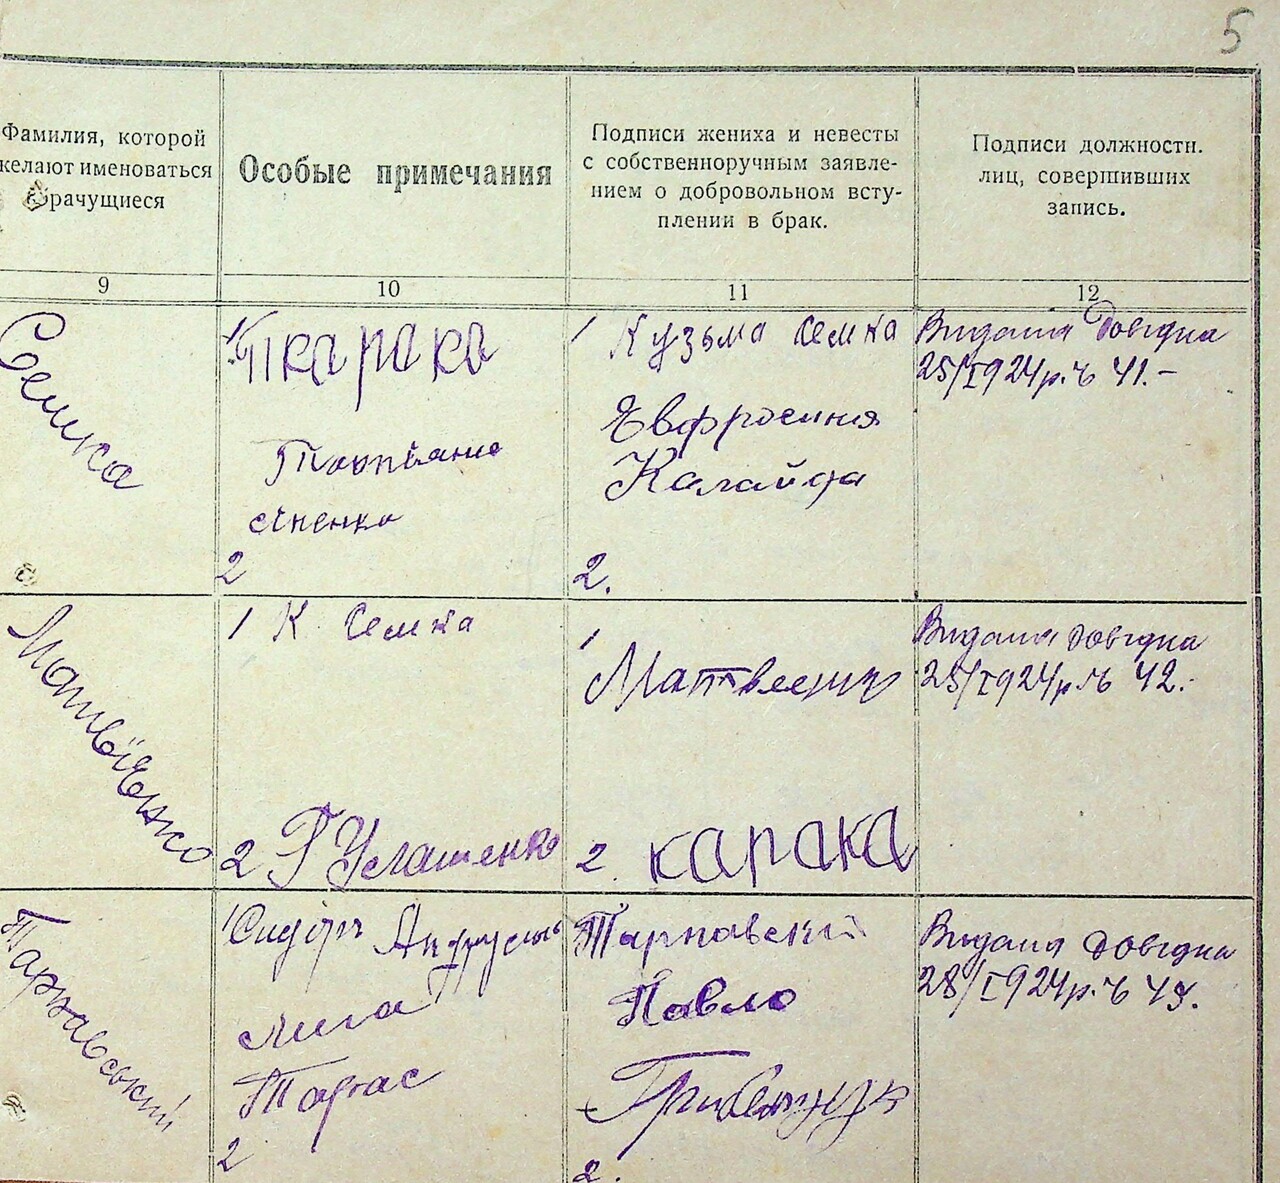 5
Фамилия, которой
желают именоваться
брачущиеся
Особые примечания
Подписи жениха и невесты
с собственноручным заявле-
нием о добровольном всту-
плении в брак.
Подписи должностн.
лиц, совершивших
запись.
9
10
11
12
Семка
1 Т карака
2
1 Кузьма Семка
Евфросиния
Калайда
2.
Видана Довідка
25/I 1924 р. № 41.-
Матвіенко
1 К Семка
2 Г
1
2. карака
Видана Довідка
25/I 1924 р. № 42.-
Тарнавський
1 Сидір
Лиса
Тарас
2
Тарновский
Павло
2.
Видана довідка
28/I 1924 р. №